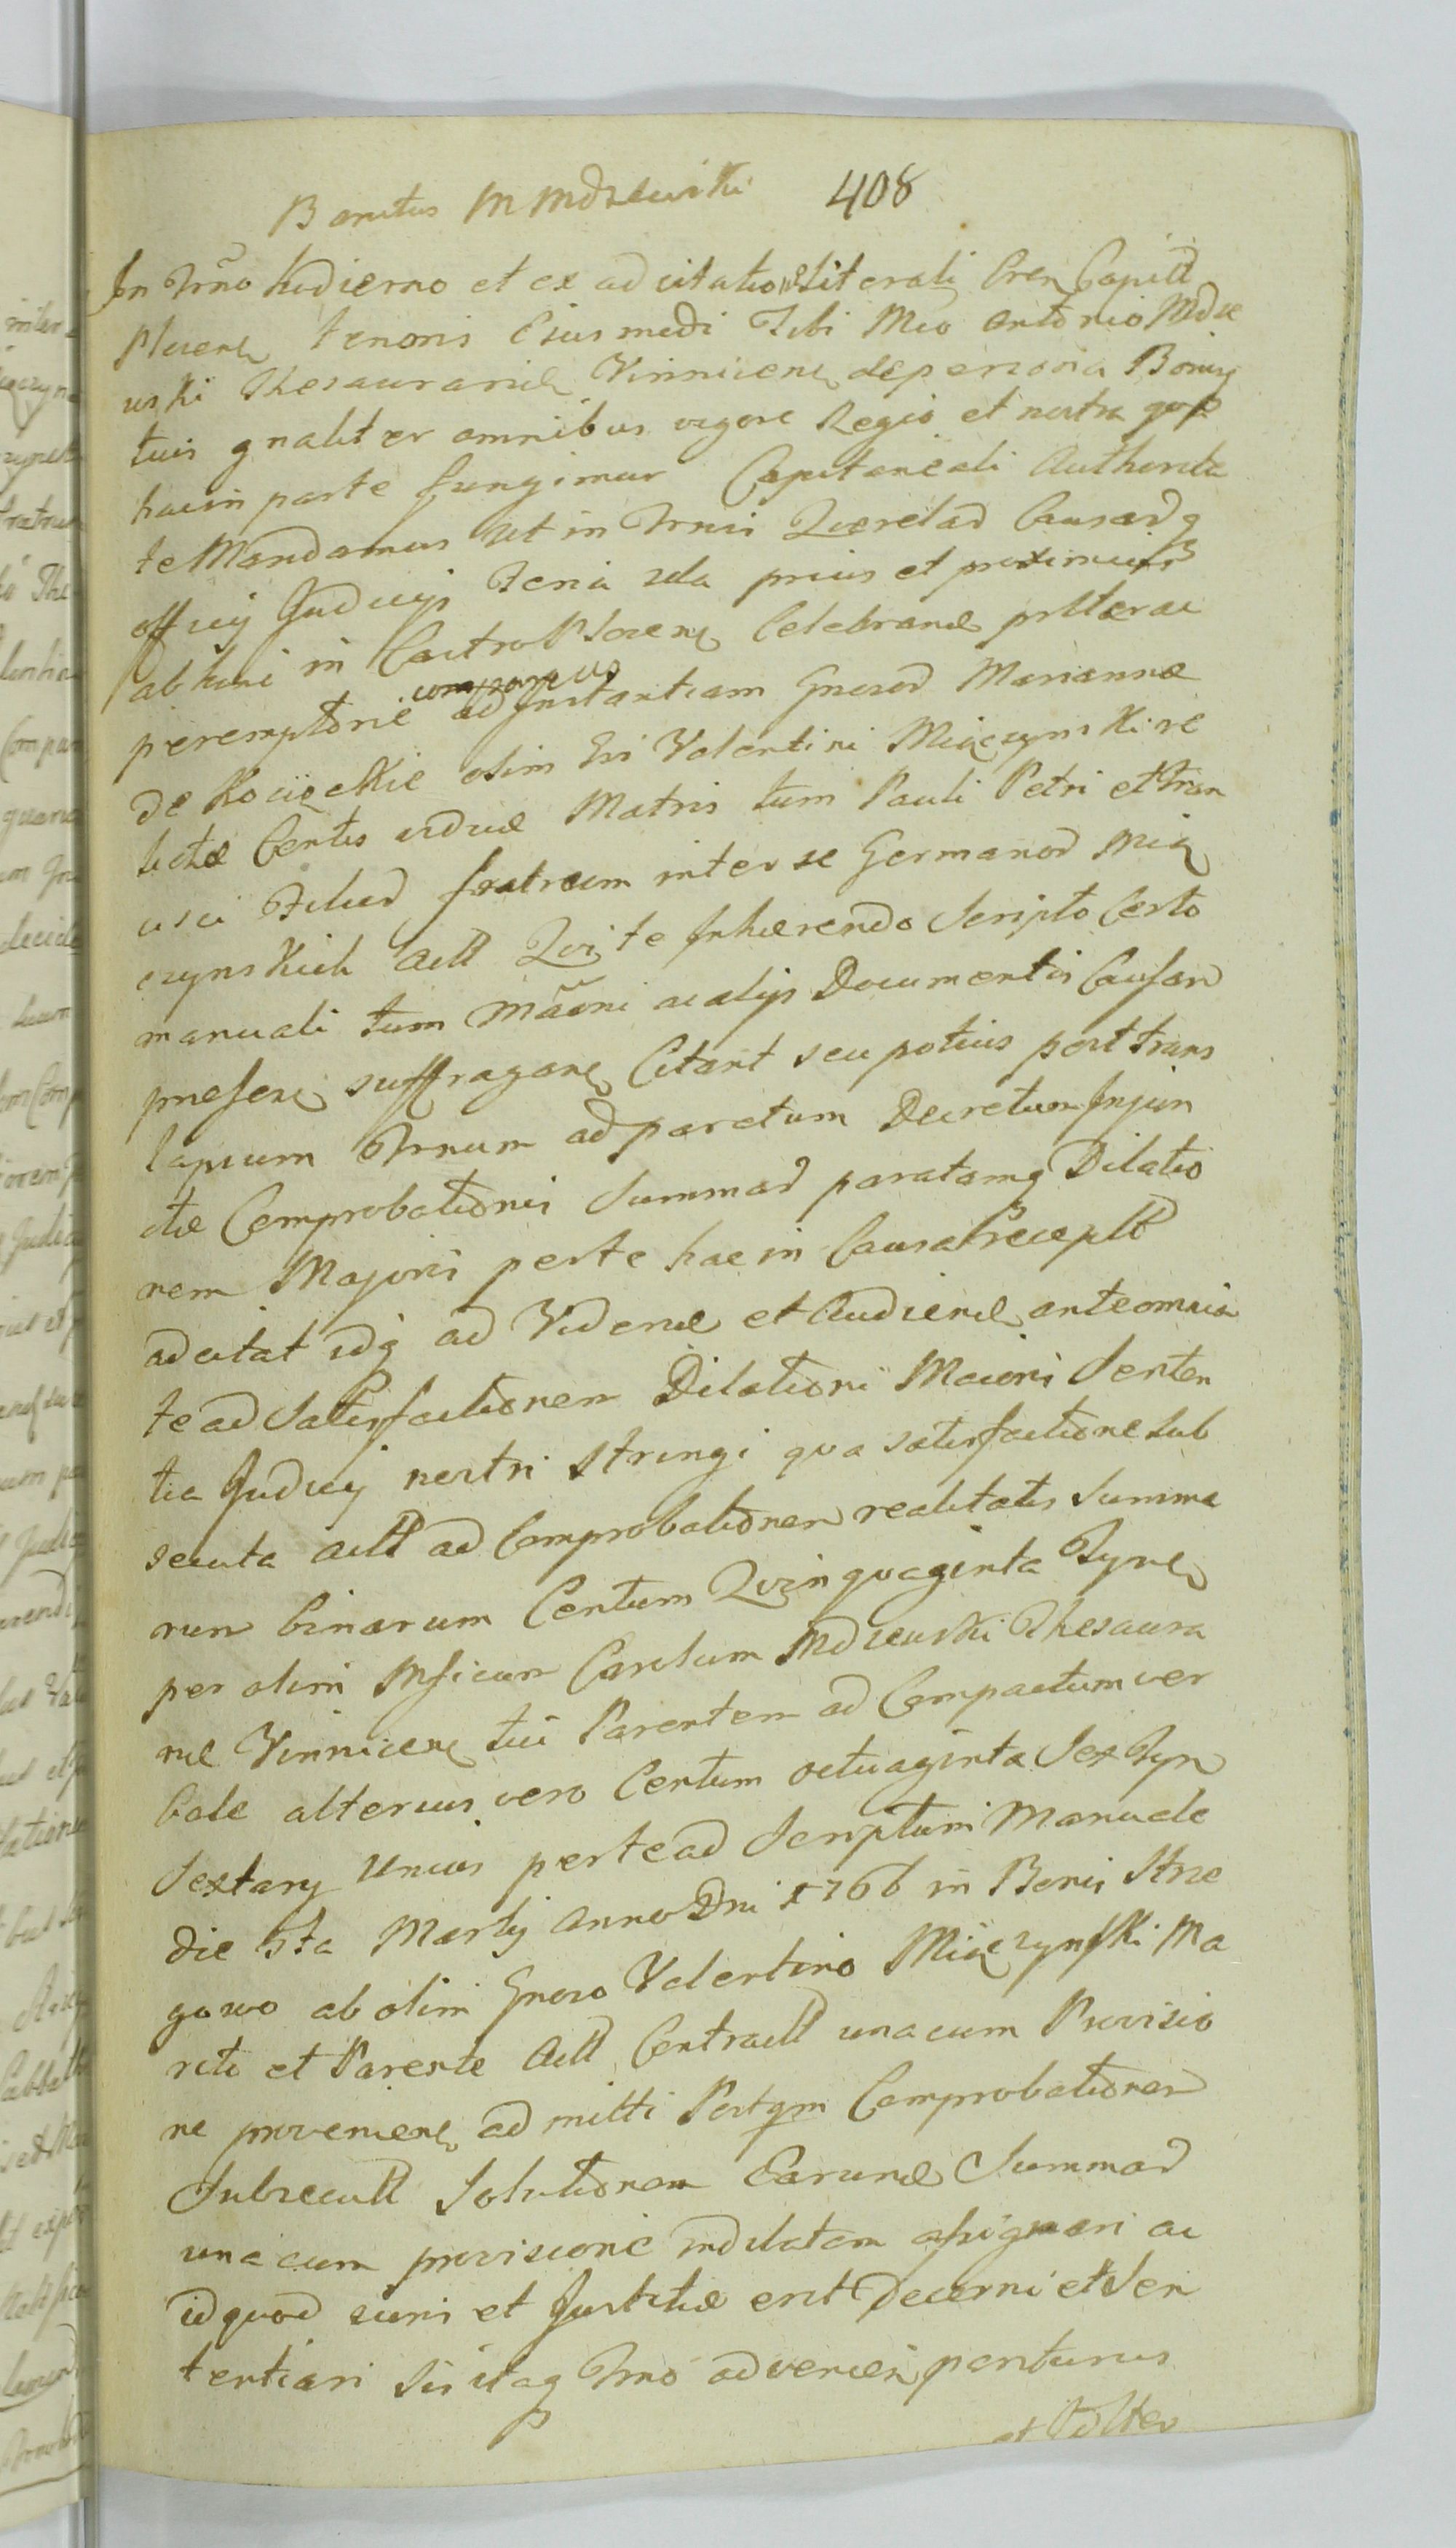 Banitus M Mdzewski 408
In Trno hodierno et ex ad citatione literali Cren Capitl
Plocen tenoris Eiusmodi Tibi Mco Antonio Mdze
wski Thesaurarid Vinnicens de persona Bonisq
tuis gnaliter omnibus vigore Regio et nostra qua
hac in parte fungimur Capitaneali Authorita
te Mandamus Ut in Trnis Querelad Causardq
officij Judicijs Feria 2da prius et proximius
ab hinc in Castro Plocen Celebrand pntter ac
peremptorie compareas ad Instantiam Gnerod Mariannæ
de Kocięckie olim Gsi Valentini Miączynski re
lictæ Contis viduæ Matris tum Pauli Petri et Fran
cisci Filiod fratrum inter se Germanod Mią
czynskich Actt Qui te Inhærendo Scripto Certo
manuali tum Mãoni ac alijs Documentis Causan
presen suffragan Citant seu potius post trans
lapsum Trnum ad paretum Decretum Injun
ctæ Comprobationis Summad paratamq Dilatio
nem Majoris per te hac in Causa Preceptt
adcitat idq ad Vidend et Audiend ante omnia
te ad Satisfactionem Dilationi Maioris Senten
tia Judicij nostri Stringi qua satisfactione sub
secuta Actt ad Comprobationem realitatis Summa
rum binarum Centum Quinquaginta Tynf
per olim Mficum Carolum Mdzewski Thesaura
rid Vinnicens tui Parentem ad Compactum ver
bale alterius vero Centum octuaginta Sex Tynf
Sextarij Unius per te ad Scriptum Manuale
die 5ta Martij Anno Dni 1766 in Bonis Strze
gowo ab olim Gnoso Valentino Miączynski Ma
rito et Parente Actt Contractt una cum Provisio
ne provenien admitti Postqm Comprobationem
Subsecutt Solutionem Earund Summad
una cum provisione indilatam assignari ac
id quod iuris et Justitiæ erit Decerni et Sen
tentiari Sis itaq Trno adveniens pariturus
et Aliter